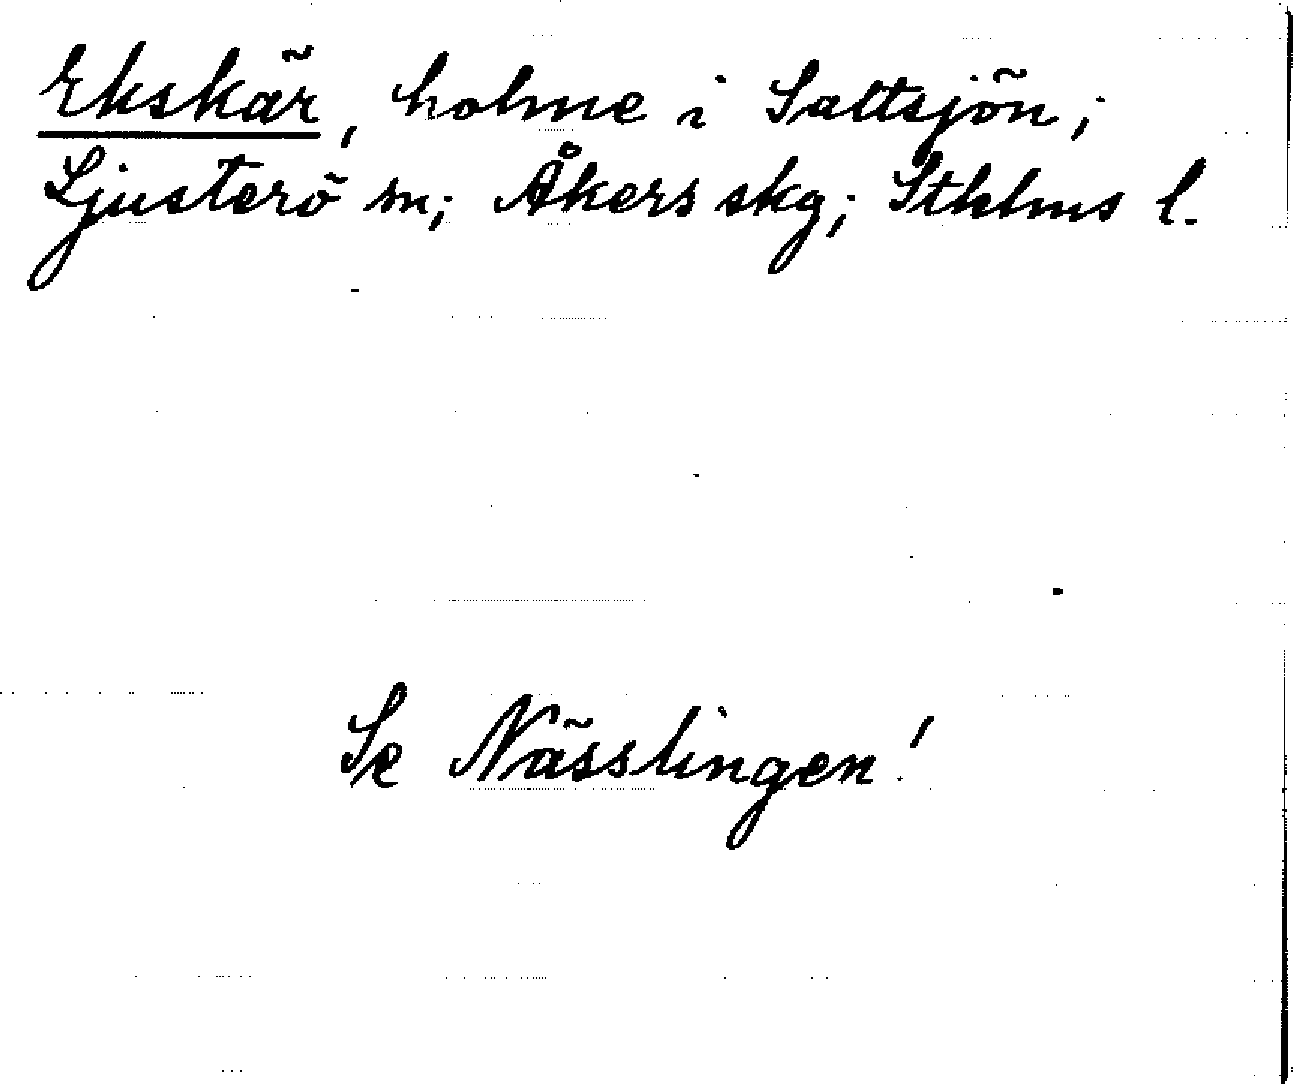 Ekskär, holme i Saltsjön;
Ljusterö sn; Åkers skg; Sthlms l.
Se Nässlingen!